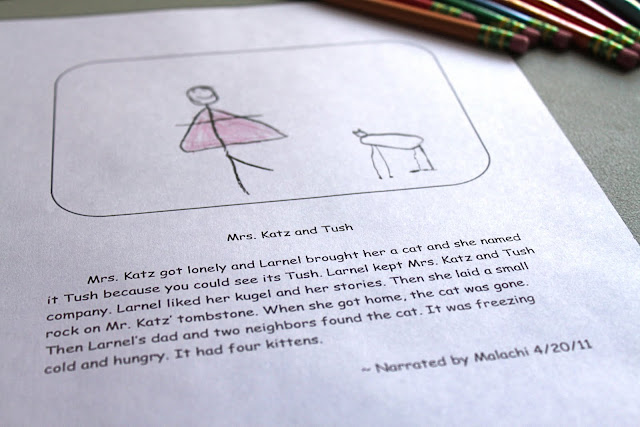 Mrs. Katz and Tush
Mrs. Katz got lonely and Larnel brought her a cat and she named
it Tush because you could see its Tush. Larnel kept Mrs. Katz and Tush
company. Larnel liked her kugel and her stories. Then she laid a small
rock on Mr. Katz' tombstone. When she got home, the cat was gone.
Then Larnel's dad and two neighbors found the cat. It was freezing
cold and hungry. It had four kittens.
~ Narrated by Malachi 4/20/11